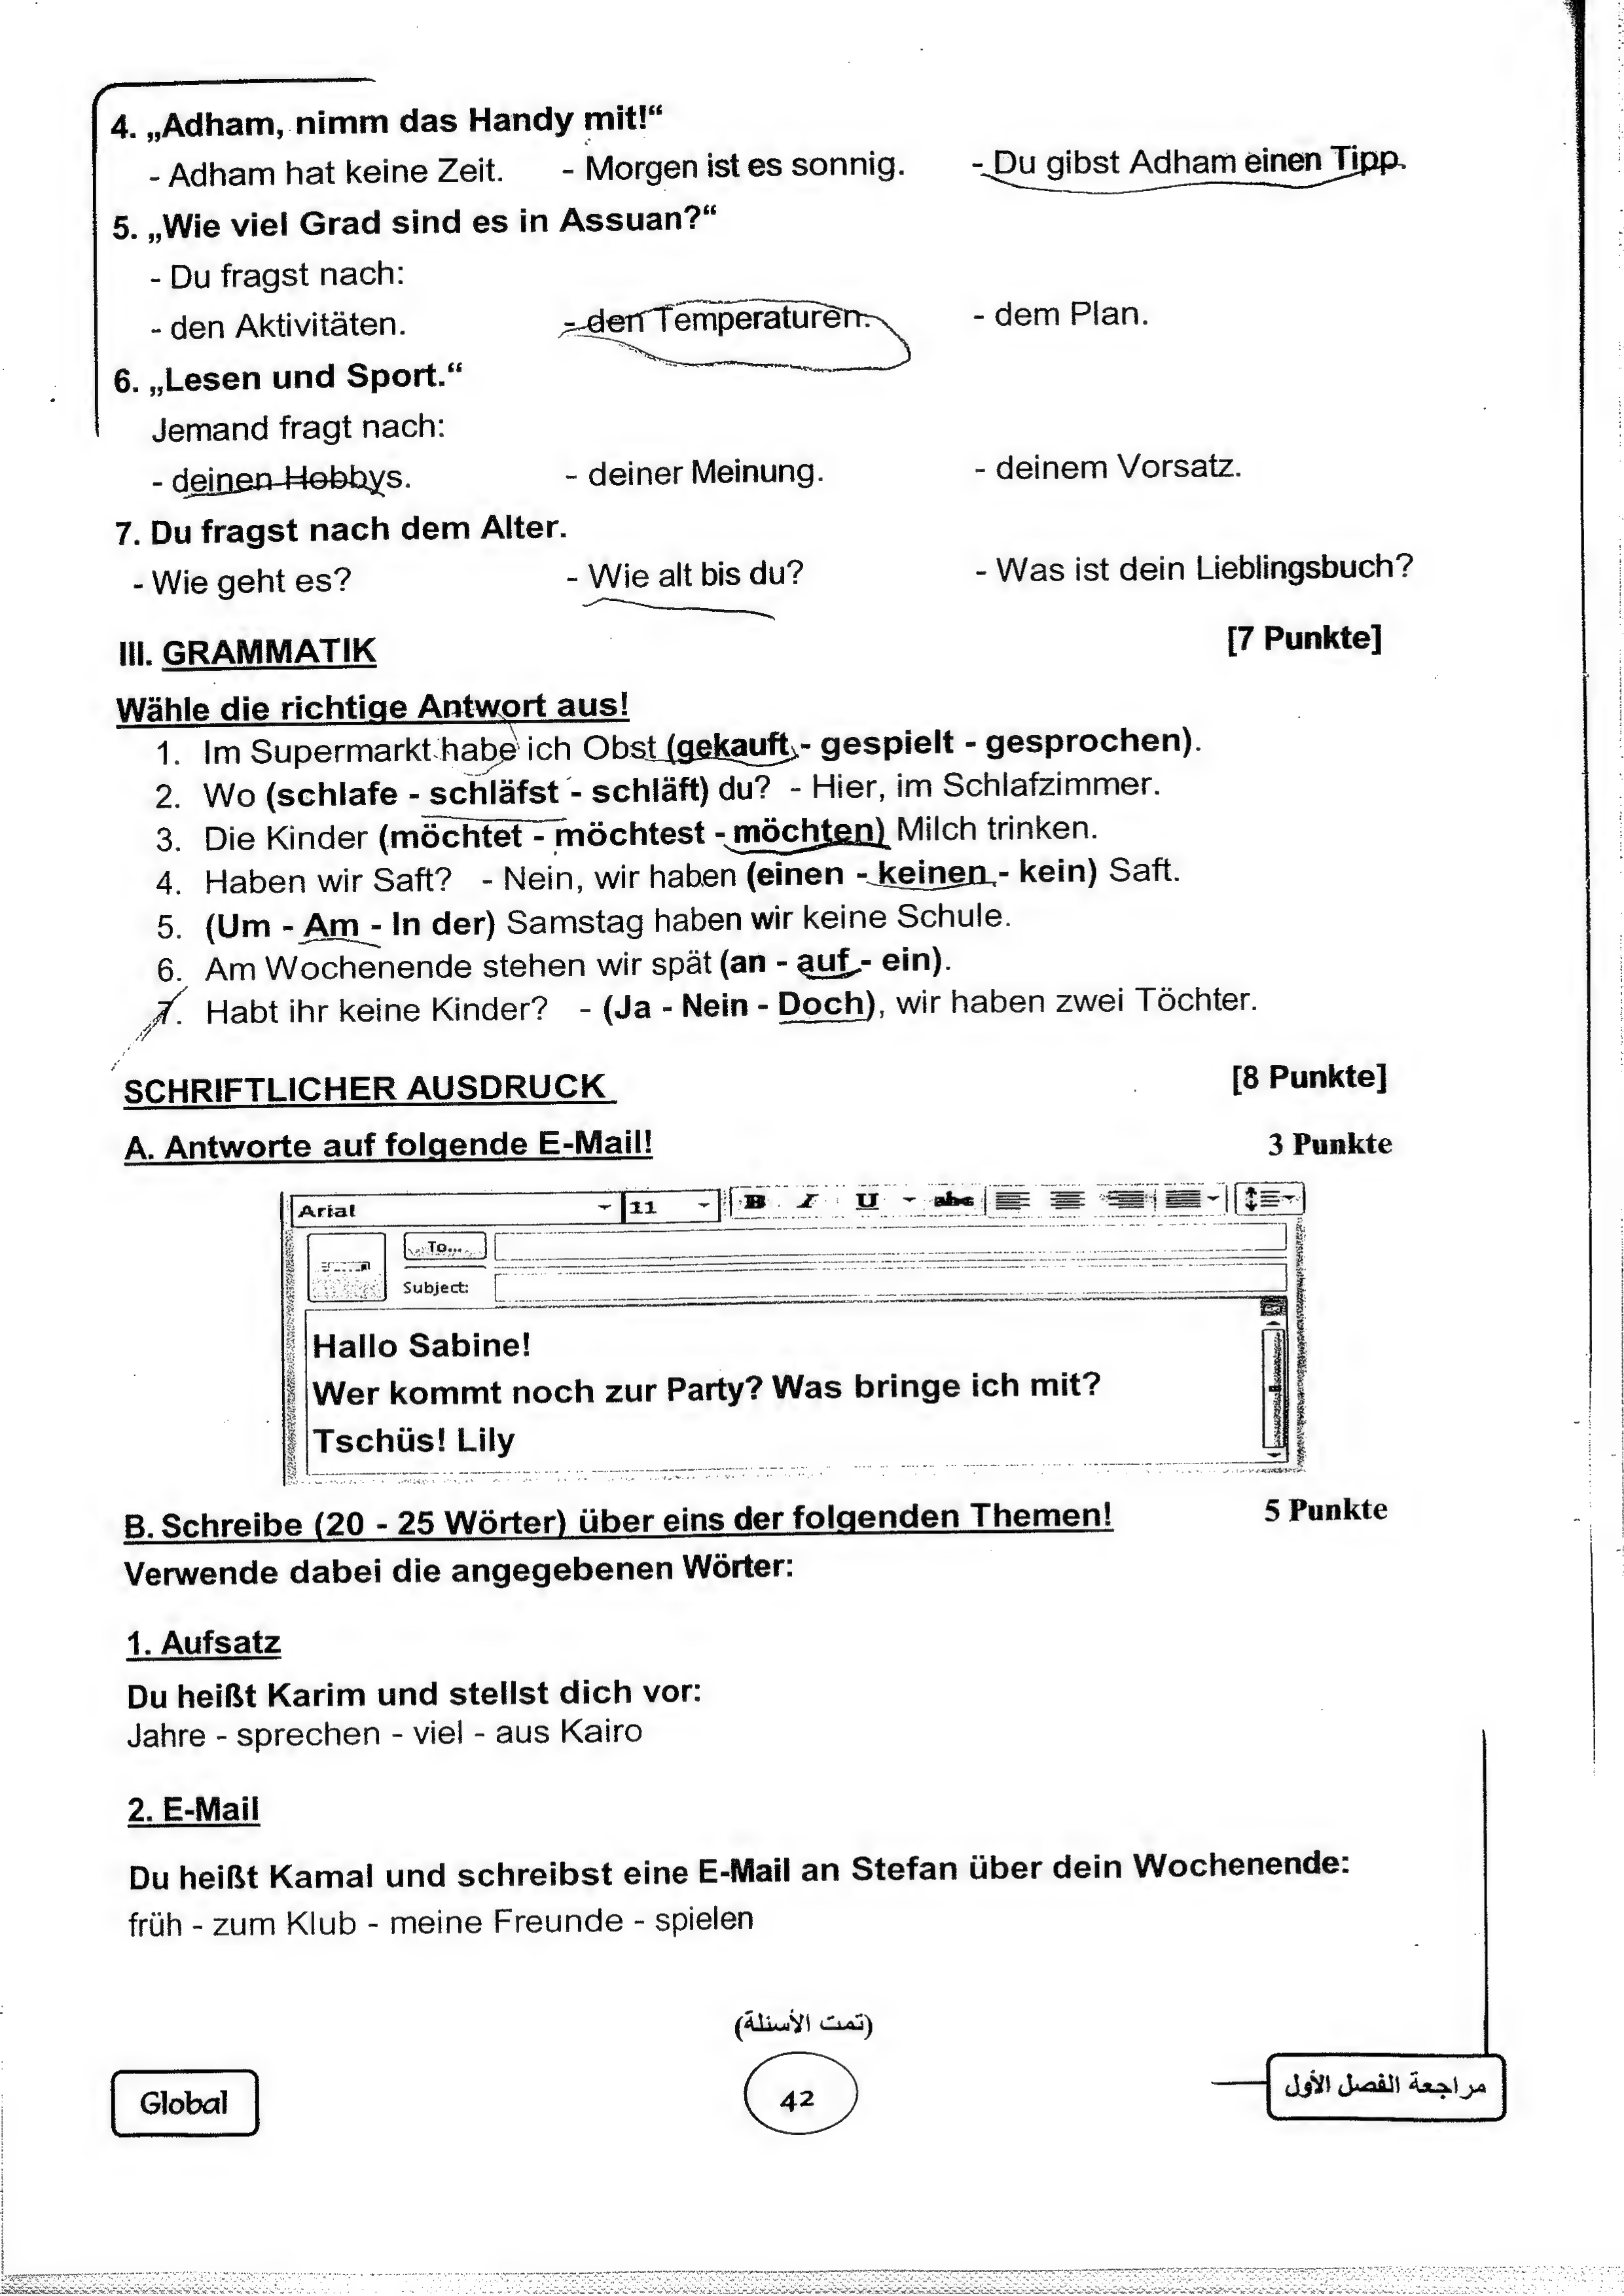 4. „Adham, nimm das Handy mit!“
- Adham hat keine Zeit. - Morgen ist es sonnig. - Du gibst Adham einen Tipp.
5. „Wie viel Grad sind es in Assuan?“
- Du fragst nach:
- den Aktivitäten. - den Temperaturen. - dem Plan.
6. „Lesen und Sport.“
Jemand fragt nach:
- deinen Hobbys. - deiner Meinung. - deinem Vorsatz.
7. Du fragst nach dem Alter.
- Wie geht es? - Wie alt bis du? - Was ist dein Lieblingsbuch?
III. GRAMMATIK [7 Punkte]
Wähle die richtige Antwort aus!
1. Im Supermarkt habe ich Obst (gekauft - gespielt - gesprochen).
2. Wo (schlafe - schläfst - schläft) du? - Hier, im Schlafzimmer.
3. Die Kinder (möchtet - möchtest - möchten) Milch trinken.
4. Haben wir Saft? - Nein, wir haben (einen - keinen - kein) Saft.
5. (Um - Am - In der) Samstag haben wir keine Schule.
6. Am Wochenende stehen wir spät (an - auf - ein).
7. Habt ihr keine Kinder? - (Ja - Nein - Doch), wir haben zwei Töchter.
SCHRIFTLICHER AUSDRUCK [8 Punkte]
A. Antworte auf folgende E-Mail! 3 Punkte
Arial 11 B I U abc
To...
Subject:
Hallo Sabine!
Wer kommt noch zur Party? Was bringe ich mit?
Tschüs! Lily
B. Schreibe (20 - 25 Wörter) über eins der folgenden Themen! 5 Punkte
Verwende dabei die angegebenen Wörter:
1. Aufsatz
Du heißt Karim und stellst dich vor:
Jahre - sprechen - viel - aus Kairo
2. E-Mail
Du heißt Kamal und schreibst eine E-Mail an Stefan über dein Wochenende:
früh - zum Klub - meine Freunde - spielen
(تمت الأسئلة)
Global 42 مراجعة الفصل الأول